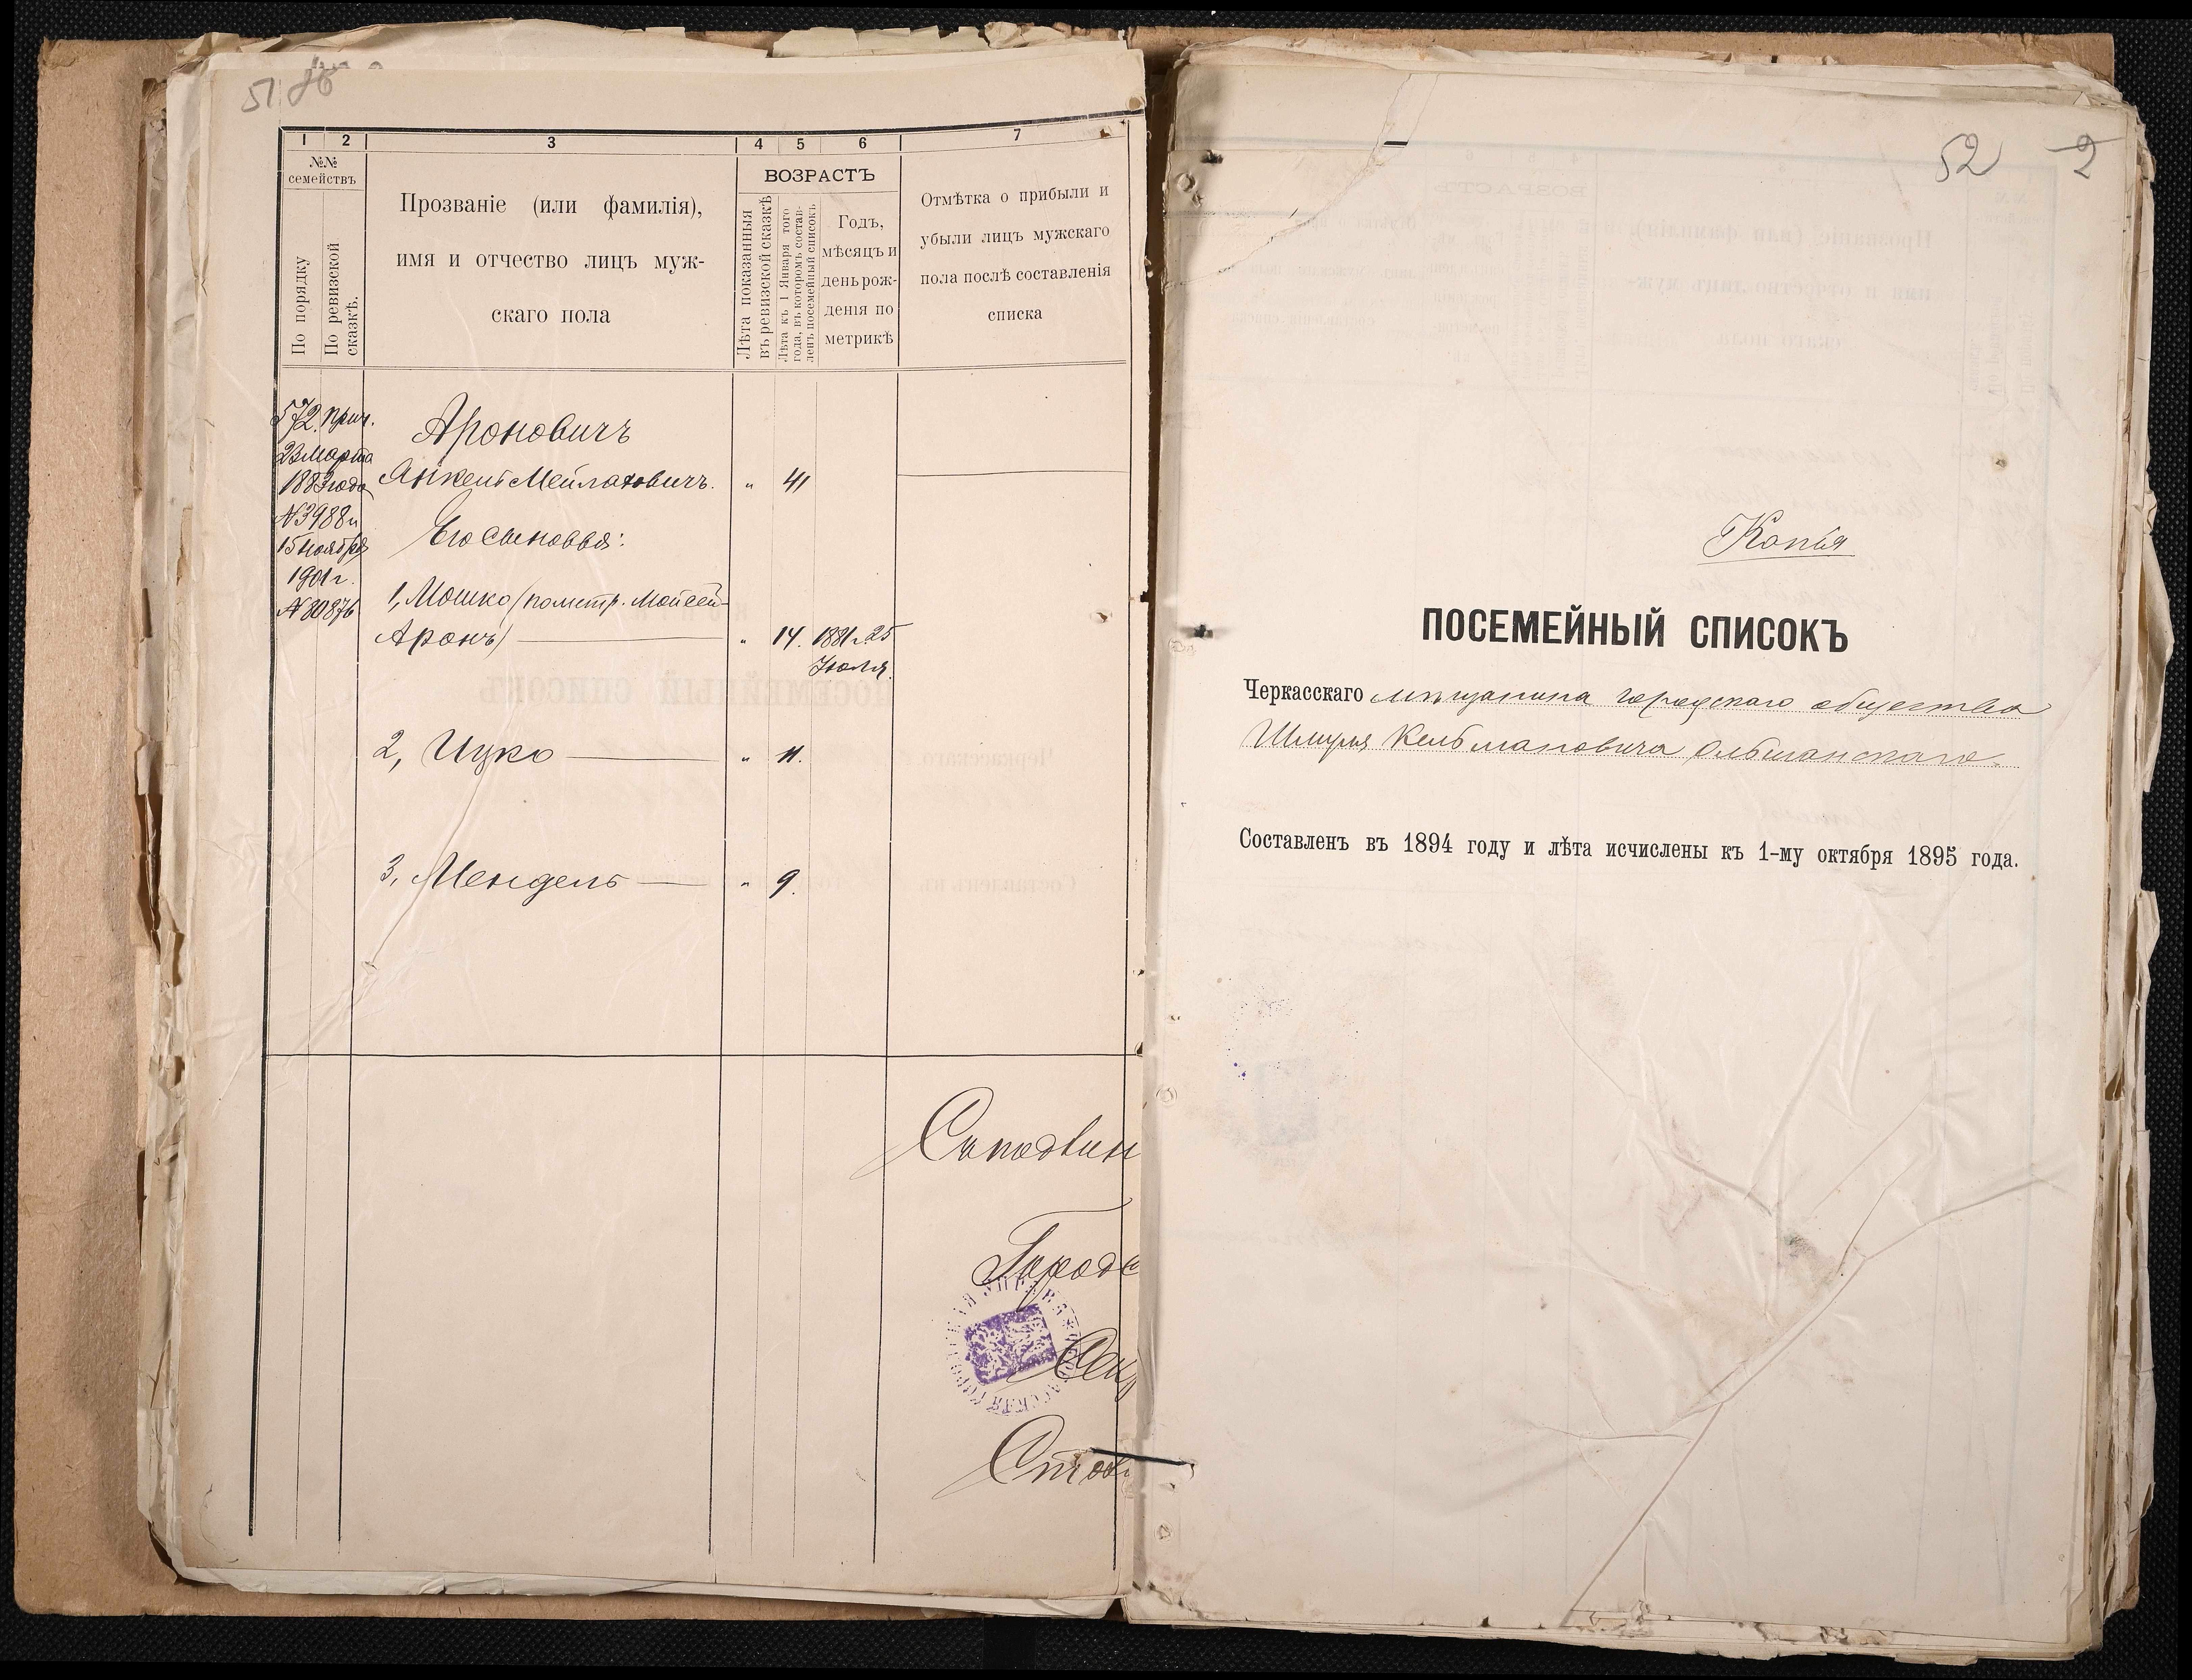 51
1 2 3 4 5 6 7
№№ семействъ
По порядку
По ревизской сказкѣ.
Прозваніе (или фамилія),
имя и отчество лицъ муж-
скаго пола
ВОЗРАСТЪ
Лѣта показанныя въ ревизской сказкѣ
Лѣта къ 1 Января того года, въ которомъ составленъ посемейный списокъ
Годъ,
мѣсяцъ и
день рож-
денія по
метрикѣ
Отмѣтка о прибыли и
убыли лицъ мужскаго
пола послѣ составленія
списка
572. прич.
23 марта
1883 года
№ 3988 и
15 ноября
1901 г.
№ 80876
Ароновичъ
Янкель Мейлаховичъ. " 41
Его сыновья:
1, Мошко (по метр. Мойсей-
Аронъ) " 14. 1881 г. 25
Іюля.
2, Ицко " 11.
3, Мендель " 9.
Городс
52 2
Копія
ПОСЕМЕЙНЫЙ СПИСОКЪ
Черкасскаго мѣщанина городскаго общества
Шмуля Кельмановича Ольшанскаго.
Составленъ въ 1894 году и лѣта исчислены къ 1-му октября 1895 года.